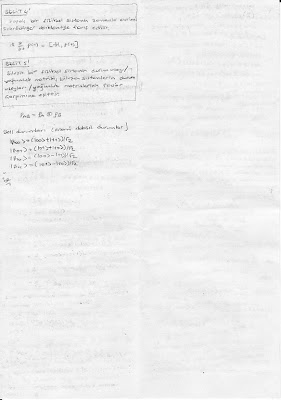 BELİT 4:
Kapalı bir fiziksel sistemin zamanla evrimi
Schrödinger denklemiyle verilir
iħ ∂/∂t ρ(t) = [H, ρ(t)]
BELİT 5:
Bileşik bir fiziksel sistemin durum
yoğunluk matrisi, bileşen sistemlerin durum
yoğunluk matrislerinin tensör
çarpımına eşittir
ρAB = ρA ⊗ ρB
Bell durumları
|β00> = (|00>+|11>)/√2
|β01> = (|01>+|10>)/√2
|β10> = (|00>-|11>)/√2
|β11> = (|01>-|10>)/√2